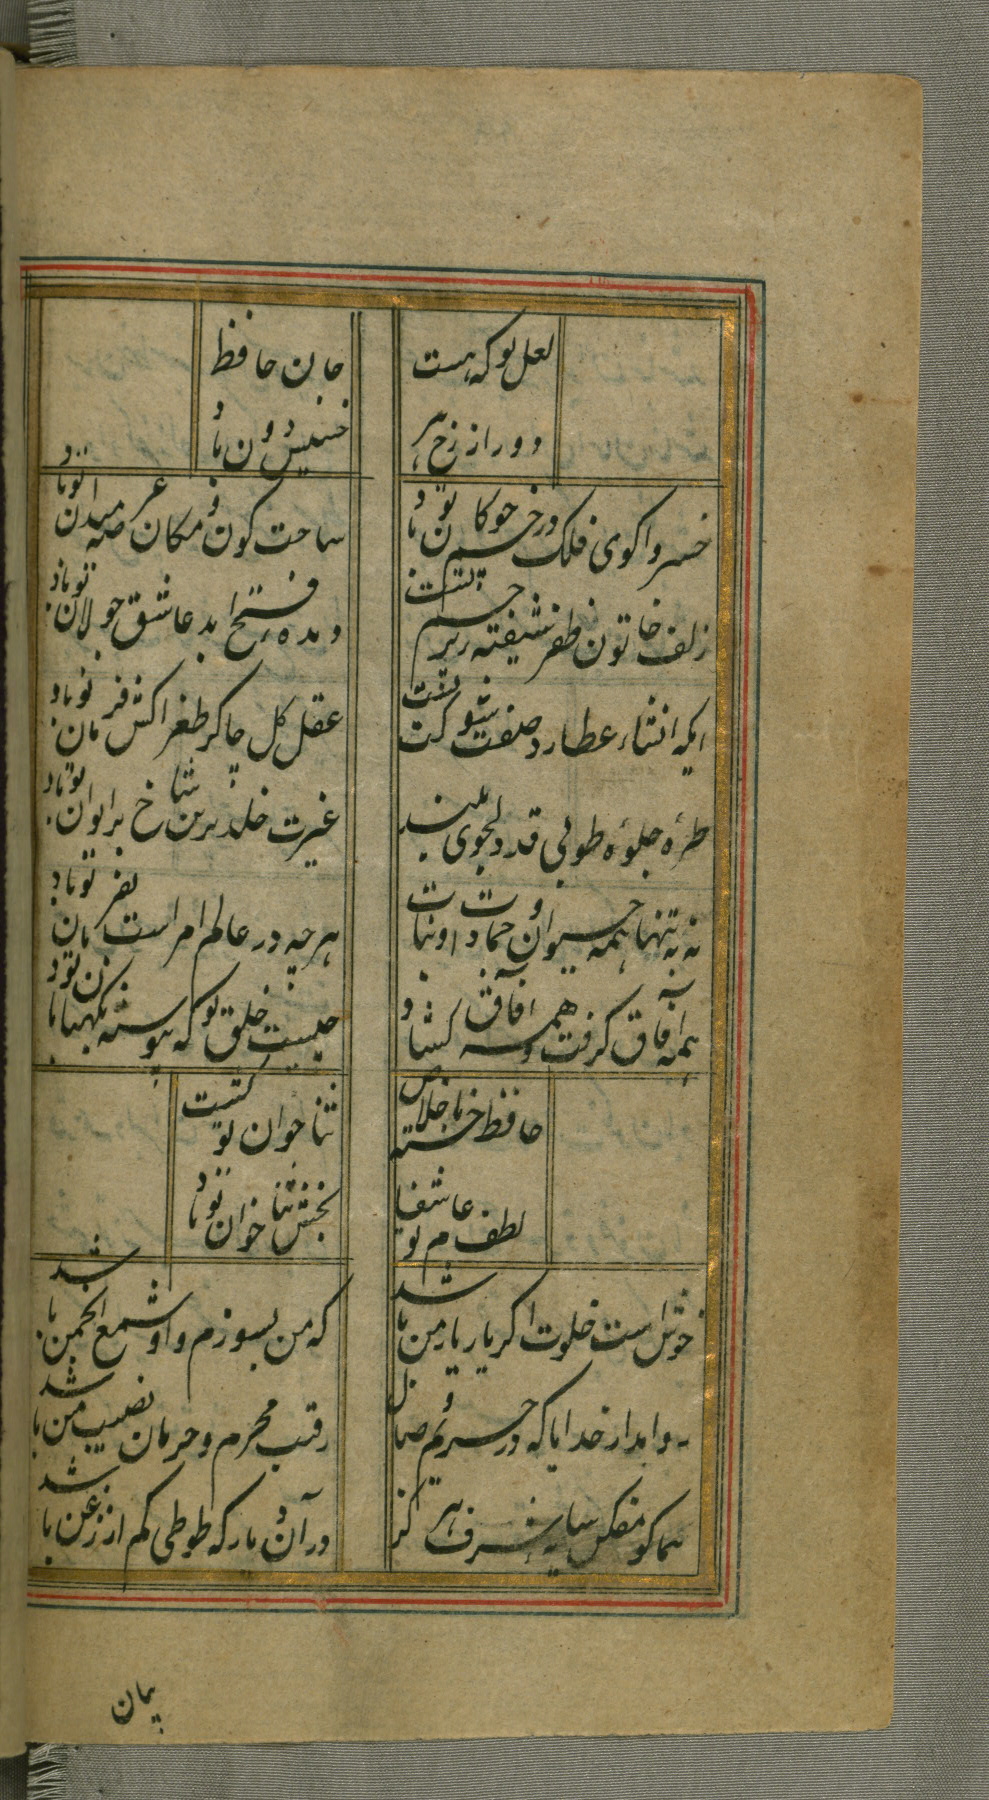 لعل تو که هست جان حافظ
دور از رخ هر خسیس و دون باد
خسروا کوی فلک در خم چوکان تو باد
ساحت کون و مکان عرصه میدان تو باد
زلف خاتون ظفر شیفته پرچم تست
دیده فتح ابد عاشق جولان تو باد
ایکه انشاء عطارد صفت شوکت تست
عقل کل چاکر طغراکش فرمان تو باد
طرٔه جلؤه طوبی قد دلجوی بلند
غیرت خلد برین شاخ بر ایوان تو باد
نه به تنها همه حیوان و جمادات و نبات
هرچه در عالم امر است بفرمان تو باد
همه آفاق کرفت و همه آفاق کشاد
خلق تو که پیوسته نکهبان تو باد
حافظ خسته باخلاص ثناخوان تو کشت
لطف عام تو شفا بخش ثناخوان تو باد
خوش است خلوت اکر یار یار من باشد
که من بسوزم و او شمع انجمن باشد
روا مدار خدایا که در حریم وصال
رقیب محرم و حرمان نصیب من باشد
همای کو مفکن سایه شرف هرکز
در آن دیار که طوطی کم از زغن باشد
یمان